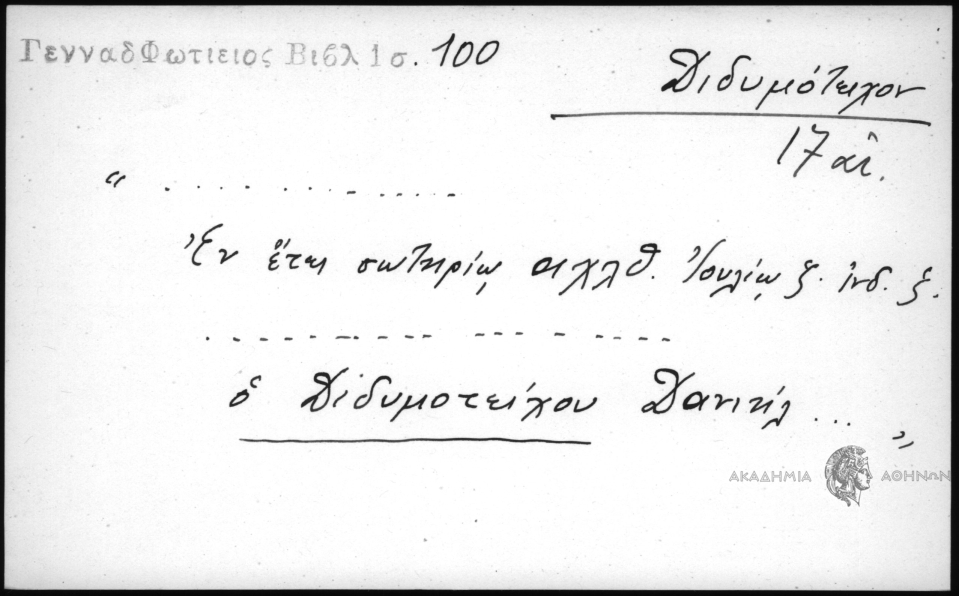 ΓενναδΦωτιειος Βιβλ 1 σ. 100
Διδυμότειχον
17 αἰ.
“ . . . . . . . . . . . . . .
Ἐν ἔτει σωτηρίῳ αχλθ. Ἰουλίῳ ζ. ἰνδ. ζ.
. . - - - - - - - - - - - - - - -
ὁ Διδυμοτείχου Δανιήλ ... „
ΑΚΑΔΗΜΙΑ ΑΘΗΝΩΝ